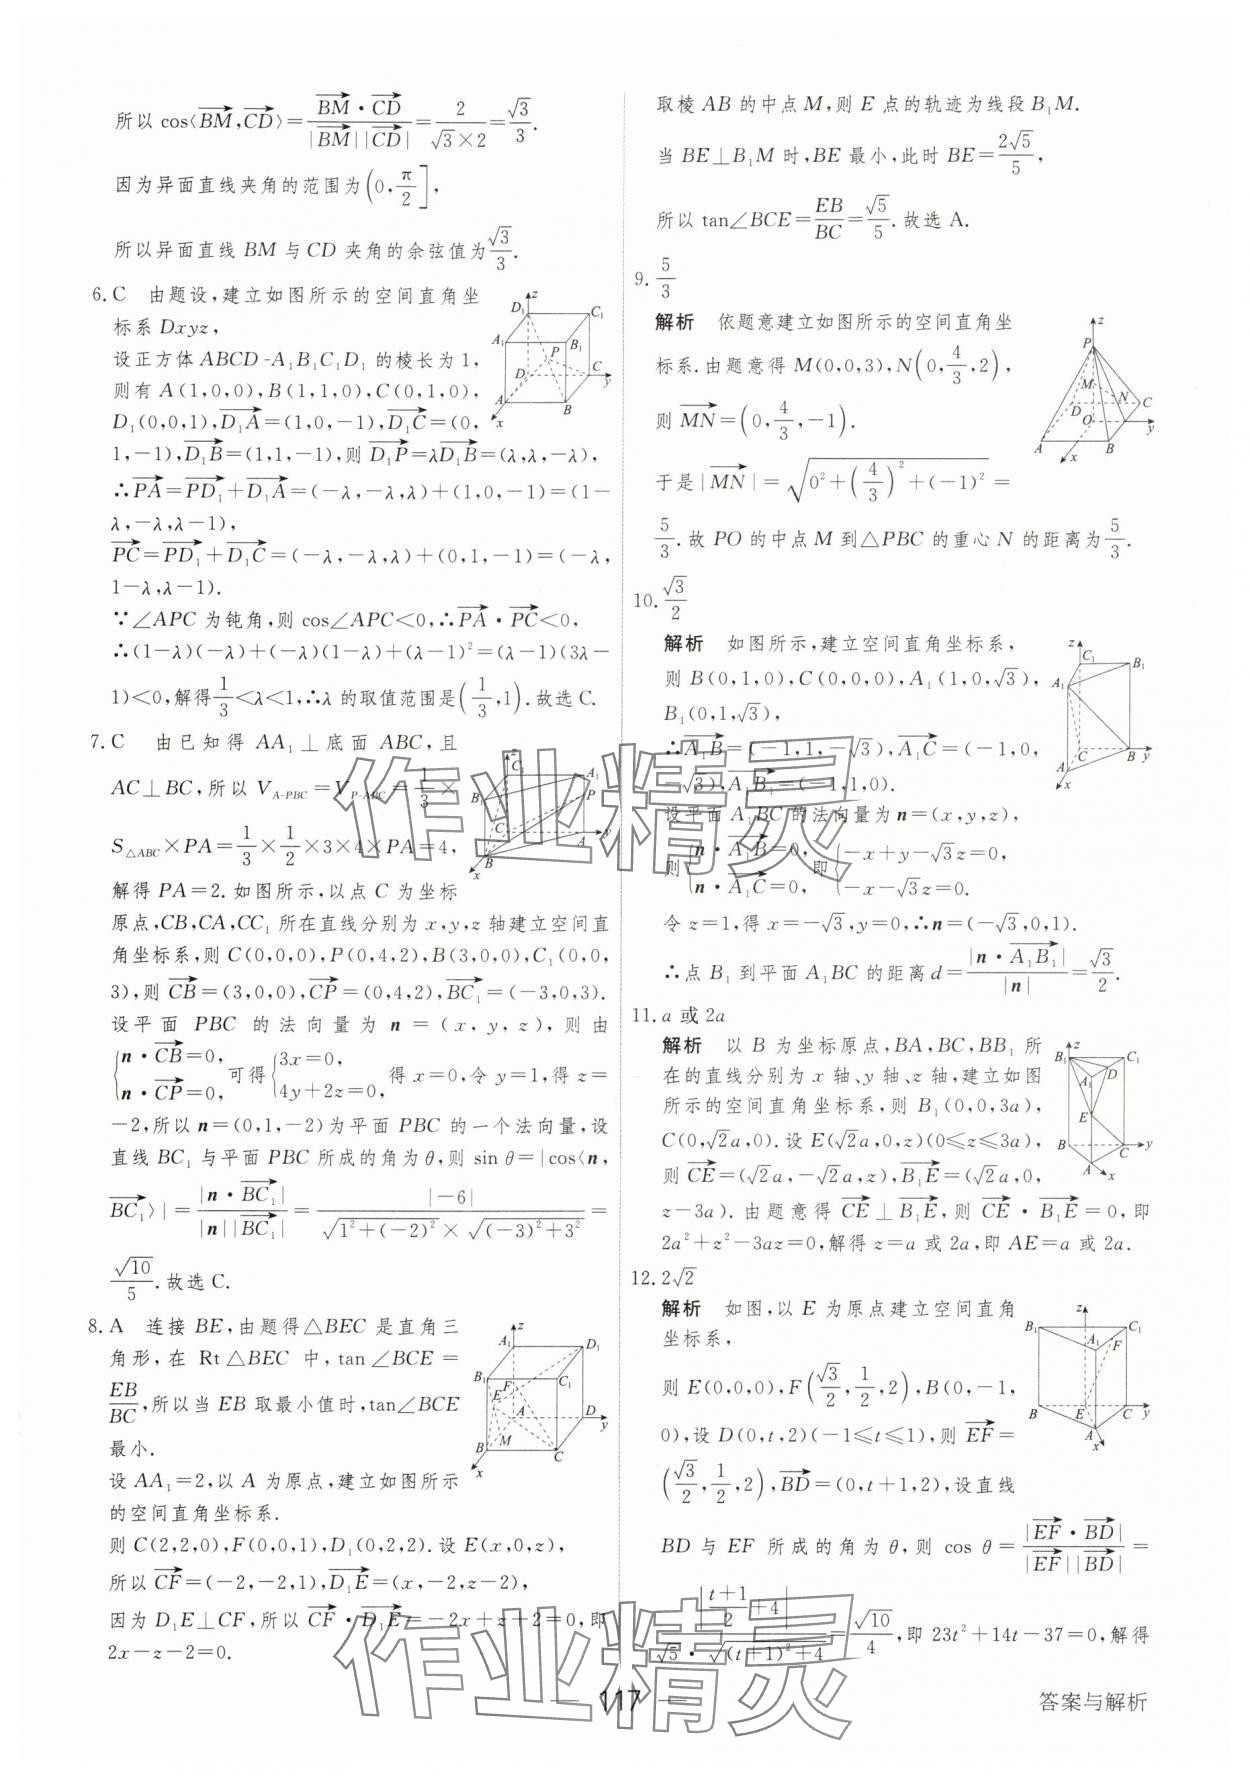 所以 cos⟨BM,CD⟩=BM·CD/|BM||CD|=2/(√3×2)=√3/3.
因为异面直线夹角的范围为(0,π/2],
所以异面直线 BM 与 CD 夹角的余弦值为√3/3.
6.C 由题设,建立如图所示的空间直角坐
标系 Dxyz,
设正方体 ABCD-A₁B₁C₁D₁ 的棱长为 1,
则有 A(1,0,0),B(1,1,0),C(0,1,0),
D₁(0,0,1),D₁A=(1,0,-1),D₁C=(0,
1,-1),D₁B=(1,1,-1),则 D₁P=λD₁B=(λ,λ,-λ),
∴PA=PD₁+D₁A=(-λ,-λ,λ)+(1,0,-1)=(1-
λ,-λ,λ-1),
PC=PD₁+D₁C=(-λ,-λ,λ)+(0,1,-1)=(-λ,
1-λ,λ-1).
∵∠APC 为钝角,则 cos∠APC<0,∴PA·PC<0,
∴(1-λ)(-λ)+(-λ)(1-λ)+(λ-1)²=(λ-1)(3λ-
1)<0,解得1/3<λ<1,∴λ 的取值范围是(1/3,1).故选 C.
7.C 由已知得 AA₁⊥底面 ABC,且
AC⊥BC,所以 V_{A-PBC}=V_{P-ABC}=1/3×
S_{△ABC}×PA=1/3×1/2×3×4×PA=4,
解得 PA=2.如图所示,以点 C 为坐标
原点,CB,CA,CC₁ 所在直线分别为 x,y,z 轴建立空间直
角坐标系,则 C(0,0,0),P(0,4,2),B(3,0,0),C₁(0,0,
3),则 CB=(3,0,0),CP=(0,4,2),BC₁=(-3,0,3).
设平面 PBC 的法向量为 n=(x,y,z),则由
{n·CB=0, n·CP=0, 可得{3x=0, 4y+2z=0, 得 x=0,令 y=1,得 z=
-2,所以 n=(0,1,-2)为平面 PBC 的一个法向量,设
直线 BC₁ 与平面 PBC 所成的角为 θ,则 sin θ=|cos⟨n,
BC₁⟩|=|n·BC₁|/|n||BC₁|=|-6|/(√(1²+(-2)²)×√((-3)²+3²))=
√10/5.故选 C.
8.A 连接 BE,由题得△BEC 是直角三
角形,在 Rt△BEC 中,tan∠BCE=
EB/BC,所以当 EB 取最小值时,tan∠BCE
最小.
设 AA₁=2,以 A 为原点,建立如图所示
的空间直角坐标系.
则 C(2,2,0),F(0,0,1),D₁(0,2,2).设 E(x,0,z),
所以 CF=(-2,-2,1),D₁E=(x,-2,z-2),
因为 D₁E⊥CF,所以 CF·D₁E=-2x+z+2=0,即
2x-z-2=0.
取棱 AB 的中点 M,则 E 点的轨迹为线段 B₁M.
当 BE⊥B₁M 时,BE 最小,此时 BE=2√5/5,
所以 tan∠BCE=EB/BC=√5/5.故选 A.
9.5/3
解析 依题意建立如图所示的空间直角坐
标系.由题意得 M(0,0,3),N(0,4/3,2),
则 MN=(0,4/3,-1).
于是|MN|=√(0²+(4/3)²+(-1)²)=
5/3.故 PO 的中点 M 到△PBC 的重心 N 的距离为5/3.
10.√3/2
解析 如图所示,建立空间直角坐标系,
则 B(0,1,0),C(0,0,0),A₁(1,0,√3),
B₁(0,1,√3),
∴A₁B=(-1,1,-√3),A₁C=(-1,0,
-√3),A₁B₁=(-1,1,0).
设平面 A₁BC 的法向量为 n=(x,y,z),
则{n·A₁B=0, n·A₁C=0, 即{-x+y-√3z=0, -x-√3z=0.
令 z=1,得 x=-√3,y=0,∴n=(-√3,0,1).
∴点 B₁ 到平面 A₁BC 的距离 d=|n·A₁B₁|/|n|=√3/2.
11.a 或 2a
解析 以 B 为坐标原点,BA,BC,BB₁ 所
在的直线分别为 x 轴、y 轴、z 轴,建立如图
所示的空间直角坐标系,则 B₁(0,0,3a),
C(0,√2a,0).设 E(√2a,0,z)(0≤z≤3a),
则 CE=(√2a,-√2a,z),B₁E=(√2a,0,
z-3a).由题意得 CE⊥B₁E,则 CE·B₁E=0,即
2a²+z²-3az=0,解得 z=a 或 2a,即 AE=a 或 2a.
12.2√2
解析 如图,以 E 为原点建立空间直角
坐标系,
则 E(0,0,0),F(√3/2,1/2,2),B(0,-1,
0),设 D(0,t,2)(-1≤t≤1),则 EF=
(√3/2,1/2,2),BD=(0,t+1,2),设直线
BD 与 EF 所成的角为 θ,则 cos θ=|EF·BD|/|EF||BD|=
|(t+1)/2+4|/(√5·√((t+1)²+4))=√10/4,即 23t²+14t-37=0,解得
117
答案与解析
作业精灵
作业精灵